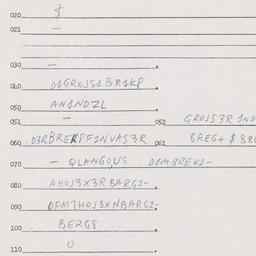 020 $
021 —
030 —
040 D1GROJS1 BR1K8
050 AN1NDZL
051 — 052 GROJS3R 1ND
060 D3RBREK8F1NVAS3R 061 BREG+ $ BR
070 — QLANGOUS D1M3REK2-
080 AHOJ3X3R BARG2-
090 OFM7HOJ3XNBARG2-
100 BERG8
110 0